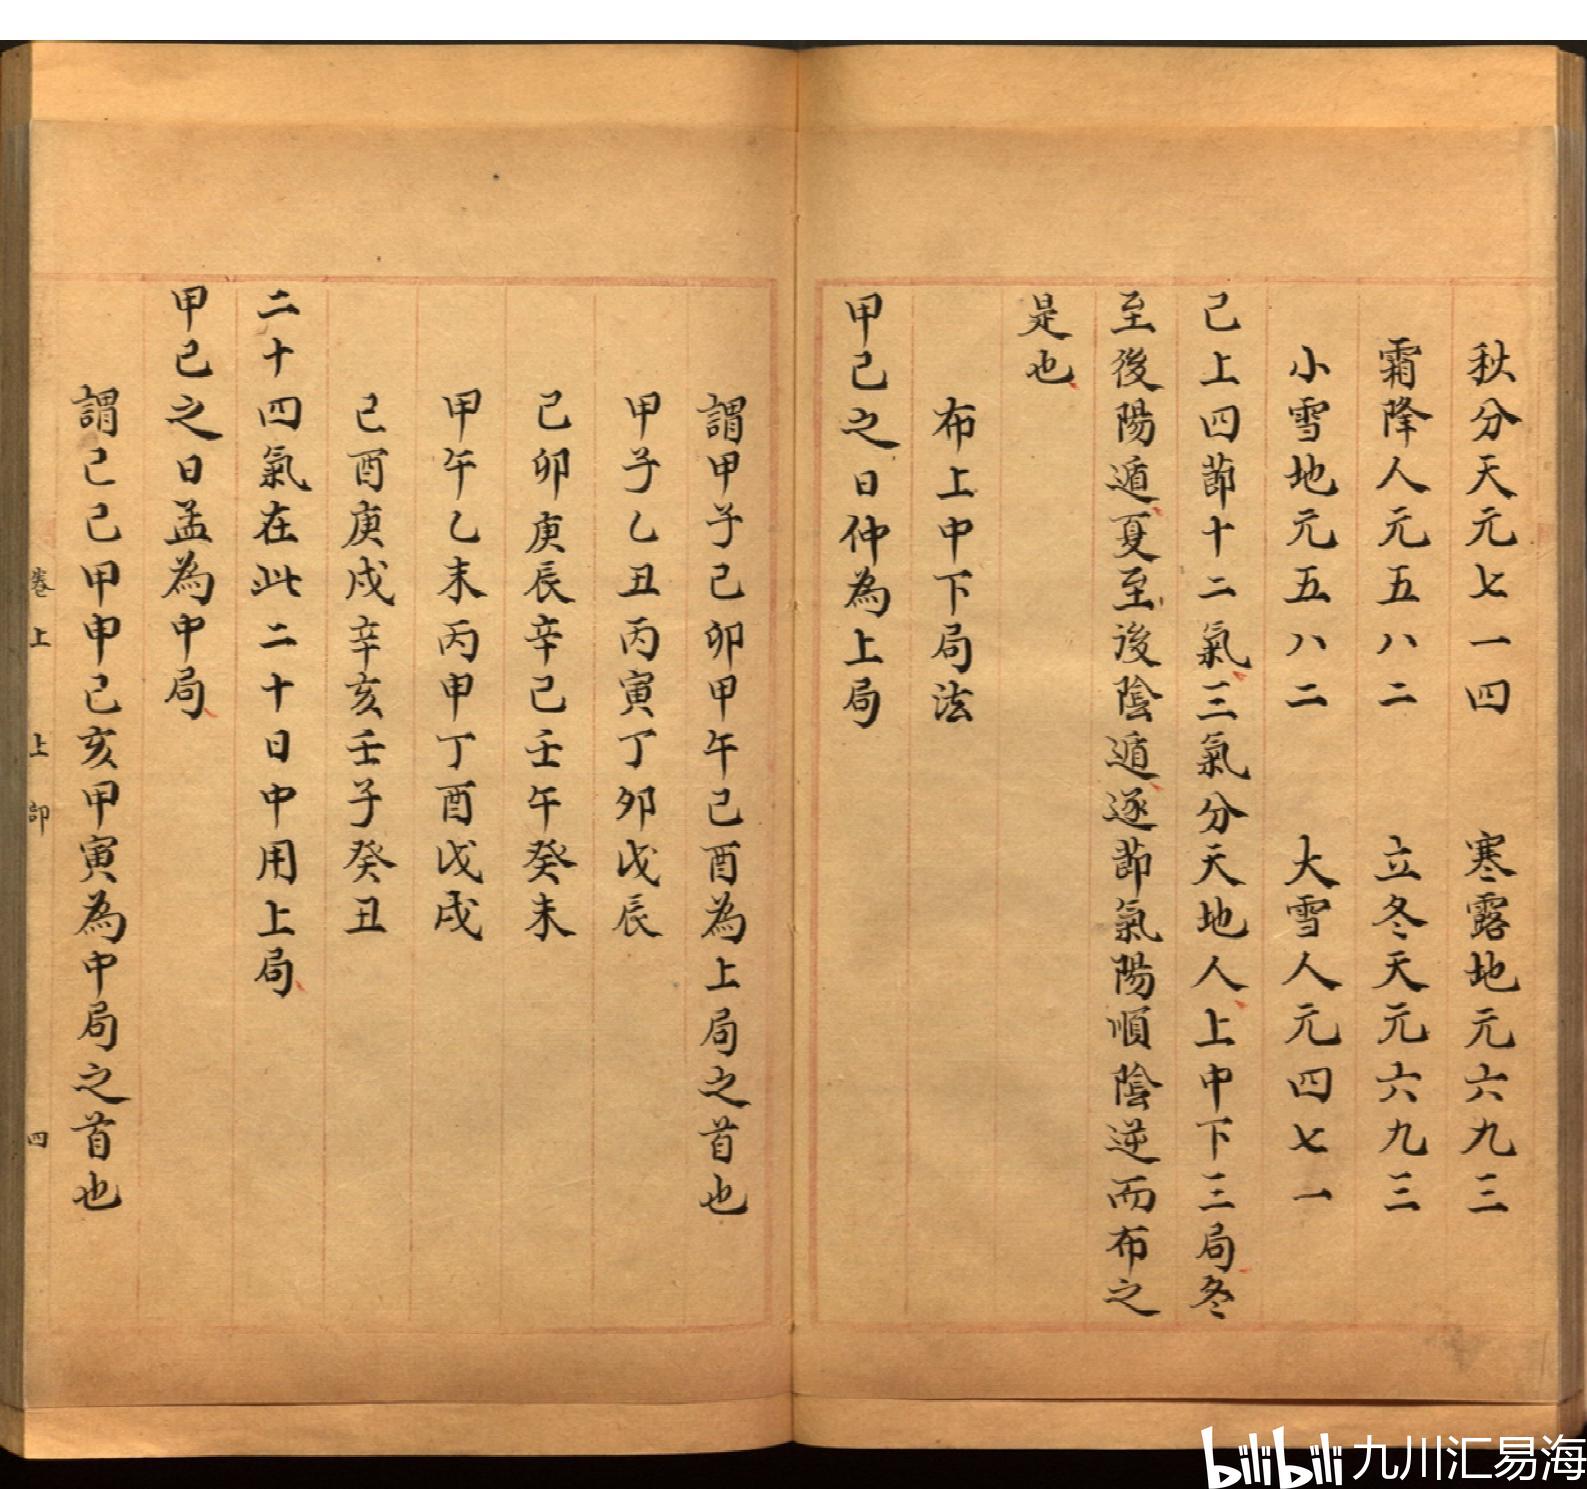 秋分天元七一四　寒露地元六九三
霜降人元五八二　立冬天元六九三
小雪地元五八二　大雪人元四七一
已上四節十二氣三氣分天地人上中下三局冬
至後陽遁夏至後陰遁逐節氣陽順陰逆而布之
是也
布上中下局法
甲己之日仲為上局
謂甲子己卯甲午己酉為上局之首也
甲子乙丑丙寅丁卯戊辰
己卯庚辰辛巳壬午癸未
甲午乙未丙申丁酉戊戌
己酉庚戌辛亥壬子癸丑
二十四氣在此二十日中用上局
甲己之日孟為中局
謂己巳甲申己亥甲寅為中局之首也
卷上　上　卯　四
bilibili 九川汇易海